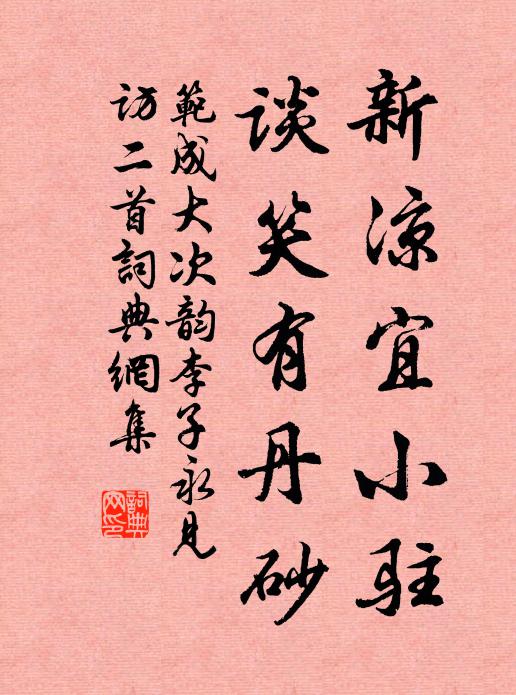 新凉宜小驻
谈笑有丹砂
範成大次韵李子永見
訪二首詞典網集
詞典網印